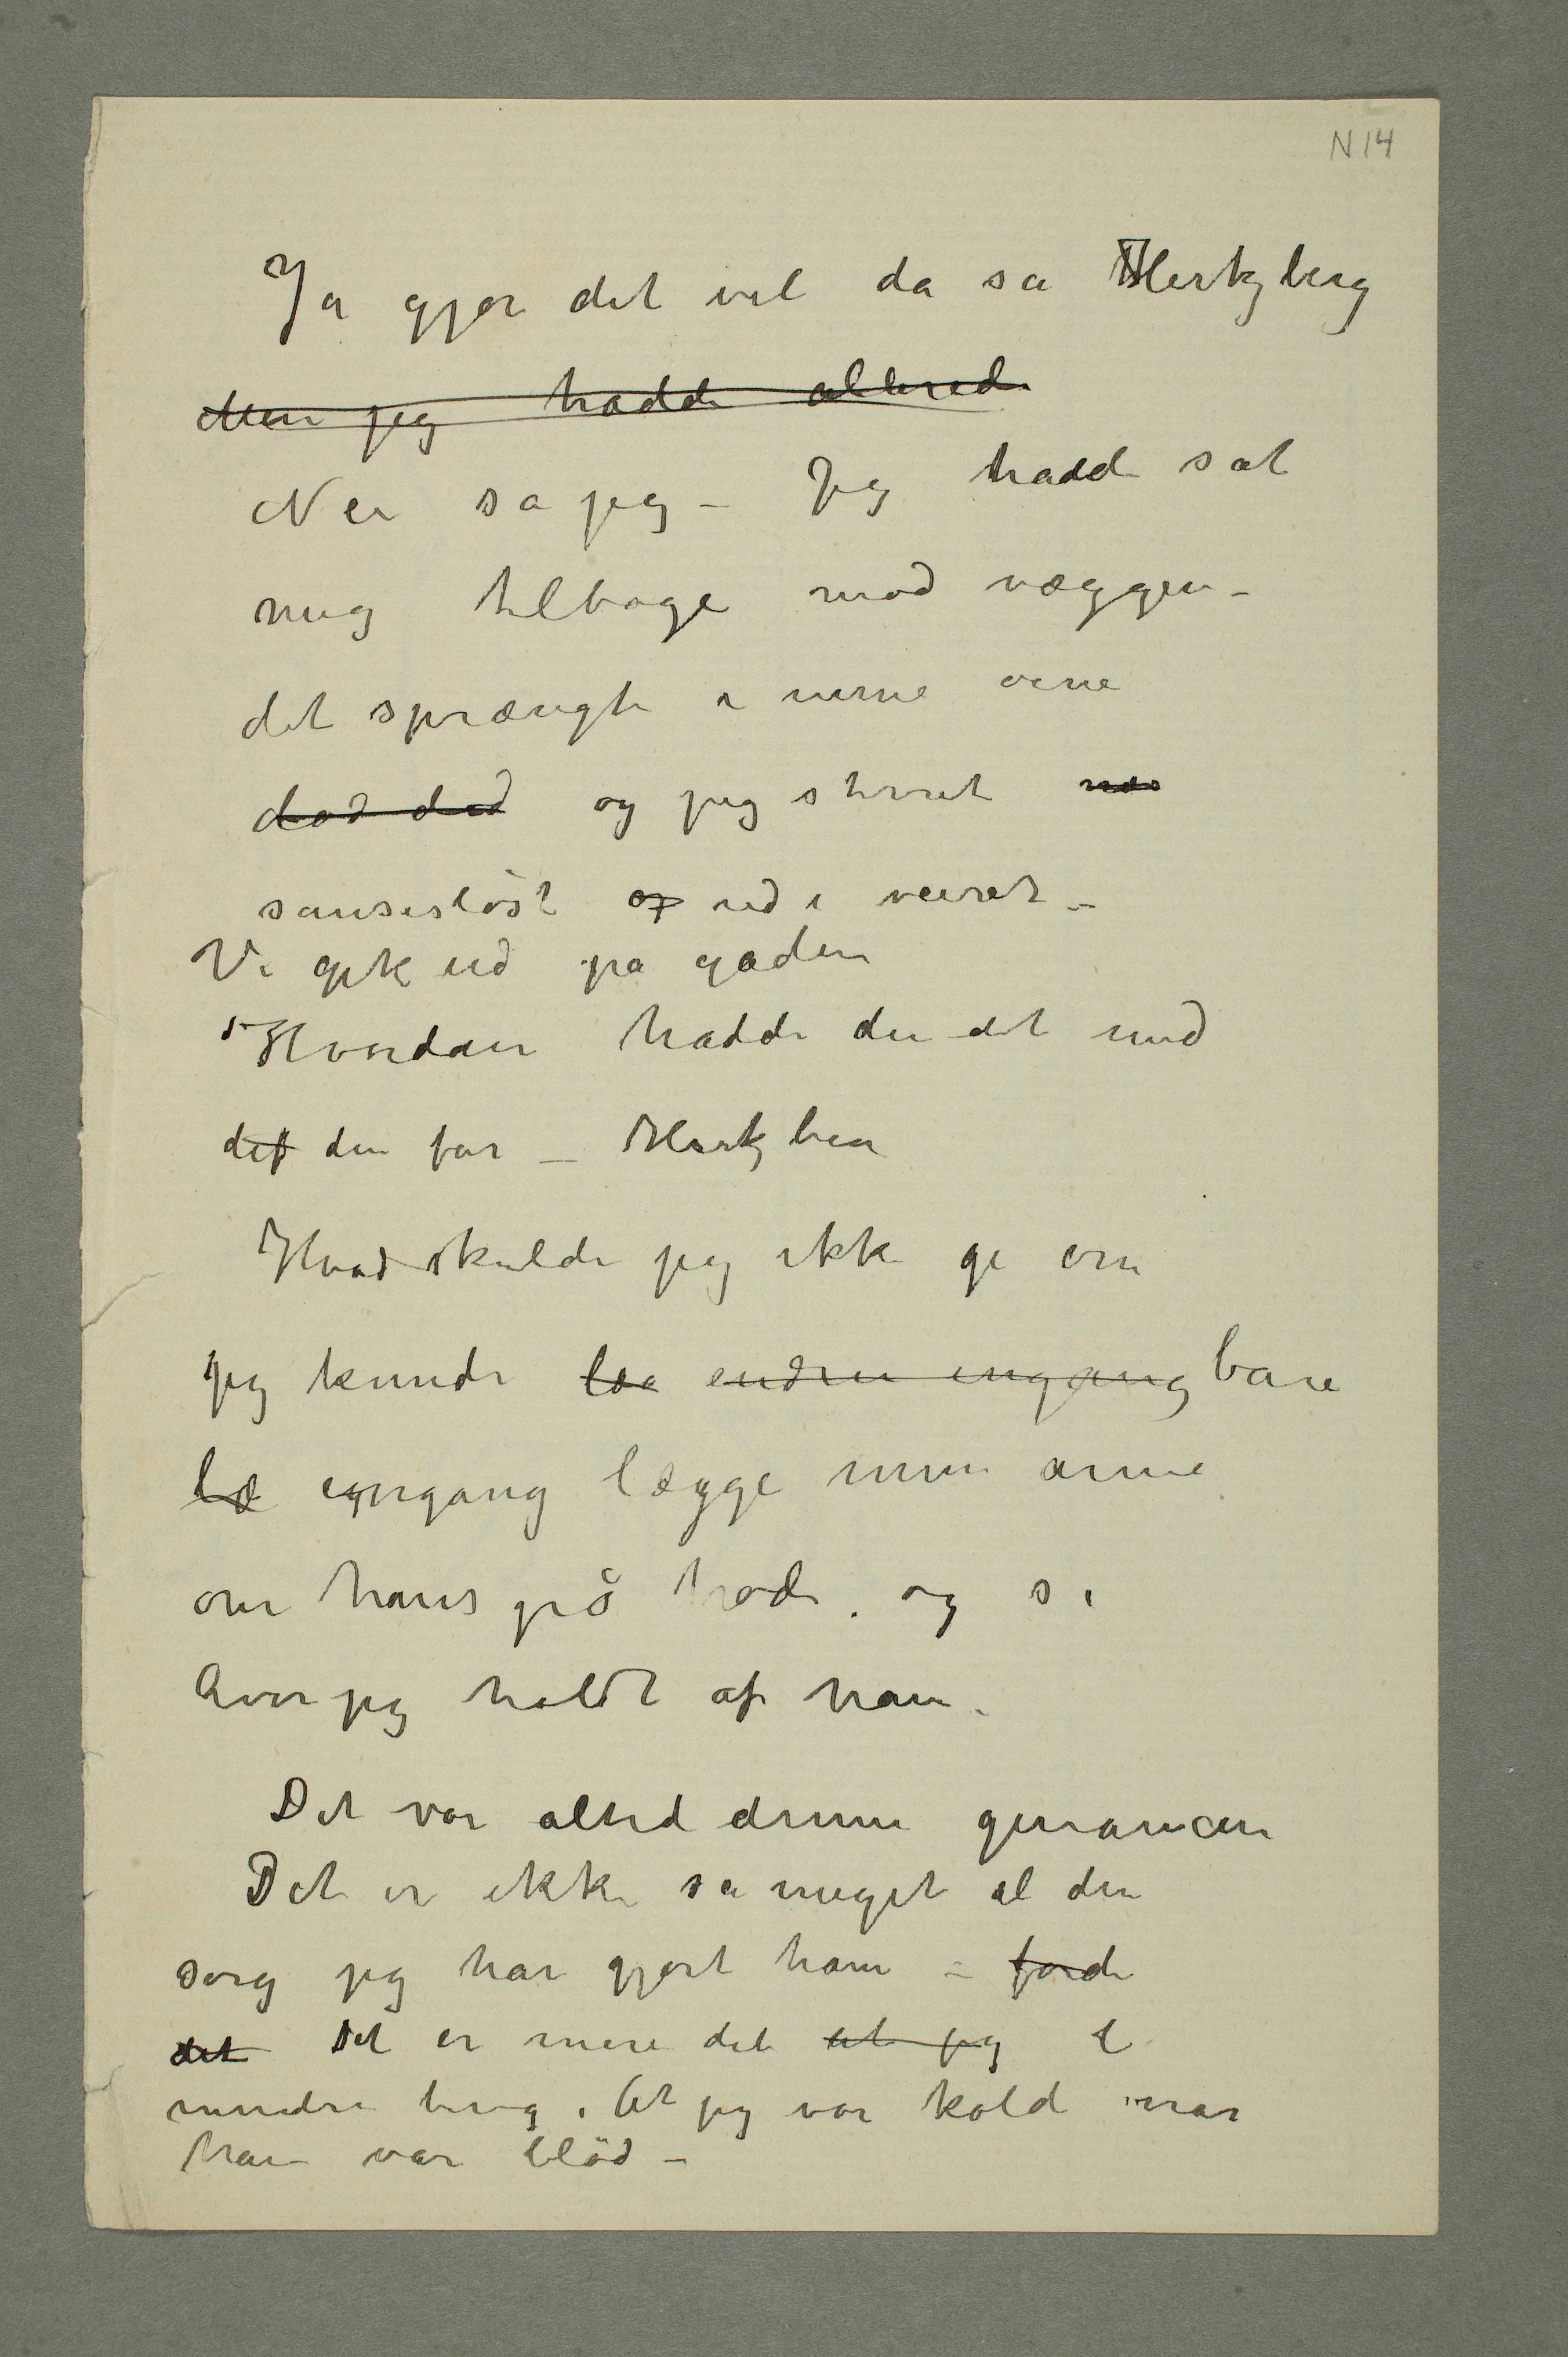 N 14
Ja gjør det vel da sa Hertzberg
Men jeg hadde allered
Nei sa jeg – Jeg hadd sat
mig tilbage mod væggen –
det sprængte i mine oine
dod dod og jeg stirret
sanseslöst op ud i veiret –
Vi gik ud pa gaden
Hvordan hadde du det med
det din far – Hertzber
Hvad skulde jeg ikke gi om
jeg kunde læ endnu engang bare
læ engang lægge mine arme
om hans grå hode. og si
hvor jeg holdt af ham.
Det var altid denne generancen
Det er ikke sa meget al den
sorg jeg har gjort ham – fordi
det Det er mere det at jeg
mindre ting, At jeg var kold nar
han var blöd –